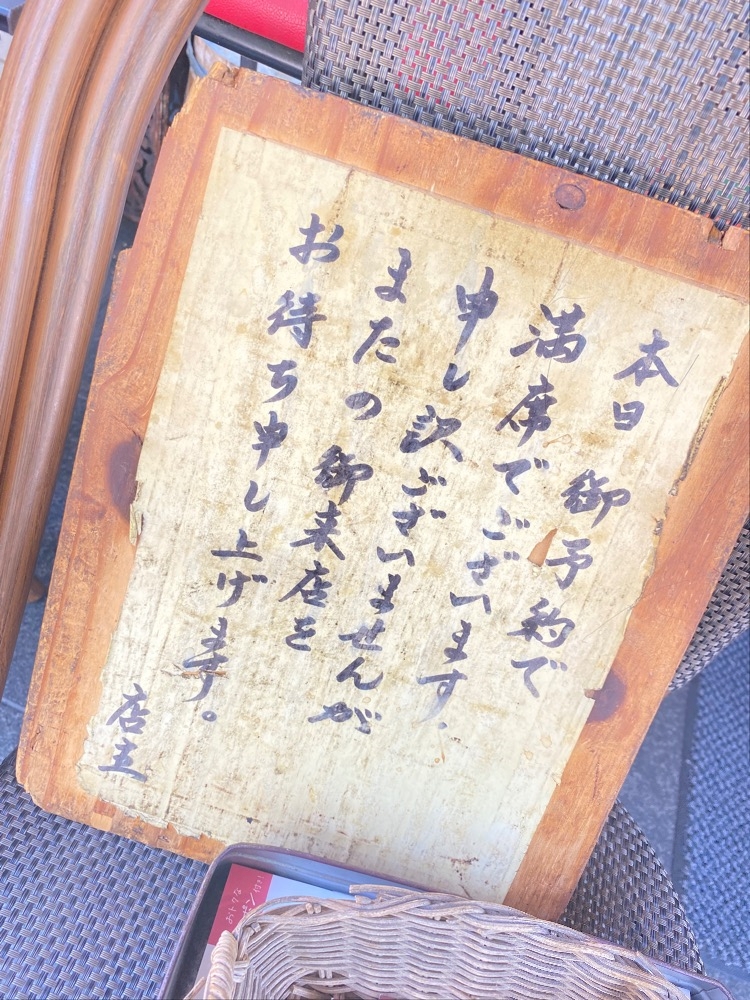 本日 御予約で
満席でございます.
申し訳ございませんが
またの御来店を
お待ち申し上げます。
店主